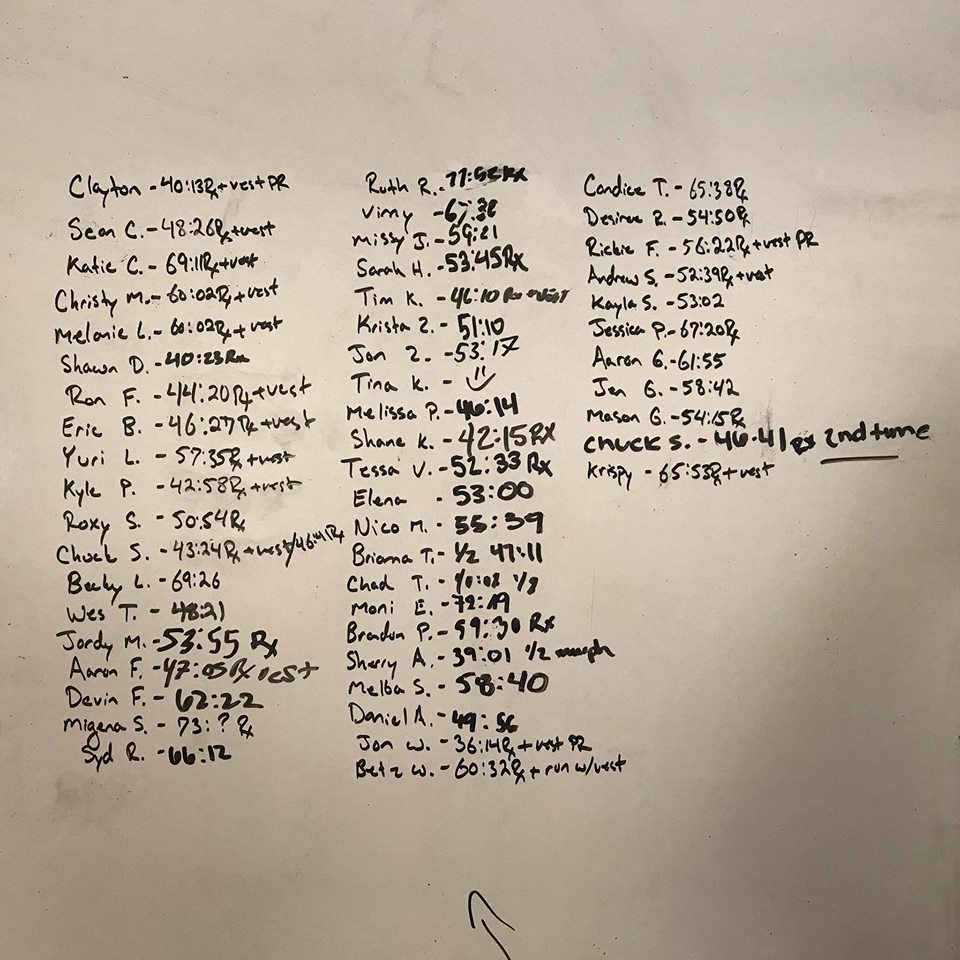 Clayton - 40:13Rx + vest PR
Sean C. - 48:26Rx + vest
Katie C. - 69:11Rx + vest
Christy M. - 60:02Rx + vest
Melanie L. - 60:02Rx + vest
Shawn D. - 40:23Rx
Ron F. - 44:20Rx + vest
Eric B. - 46:27Rx + vest
Yuri L. - 57:35Rx + vest
Kyle P. - 42:58Rx + vest
Roxy S. - 50:54Rx
Chuck S. - 43:24Rx + vest/46:41Rx
Becky L. - 69:26
Wes T. - 48:21
Jordy M. - 53:55 Rx
Aaron F. - 47:05 Rx vest
Devin F. - 62:22
Migena S. - 73:? Rx
Syd R. - 66:12
Ruth R. - Rx
Vinny - 67:38
Missy J. - 59:21
Sarah H. - 53:45Rx
Tim K. - 46:10 Rx
Krista Z. - 51:10
Jon Z. - 53:17
Tina K. - 
Melissa P. - 46:14
Shane K. - 42:15 RX
Tessa V. - 52:33 Rx
Elena - 53:00
Nico M. - 55:39
Brianna T. - 1/2 47:11
Chad T. -
Moni E. - 72:19
Brandon P. - 59:30 Rx
Sherry A. - 39:01 1/2 murph
Melba S. - 58:40
Daniel A. - 49:56
Jon W. - 36:14Rx + vest PR
Betz W. - 60:32Rx + run w/vest
Candice T. - 65:38Rx
Desiree R. - 54:50Rx
Rickie F. - 56:22Rx + vest PR
Andrew S. - 52:39Rx + vest
Kayla S. - 53:02
Jessica P. - 67:20Rx
Aaron G. - 61:55
Jen G. - 58:42
Mason G. - 54:15Rx
Chuck S. - 46:41 Rx 2nd time
Krispy - 65:53Rx + vest